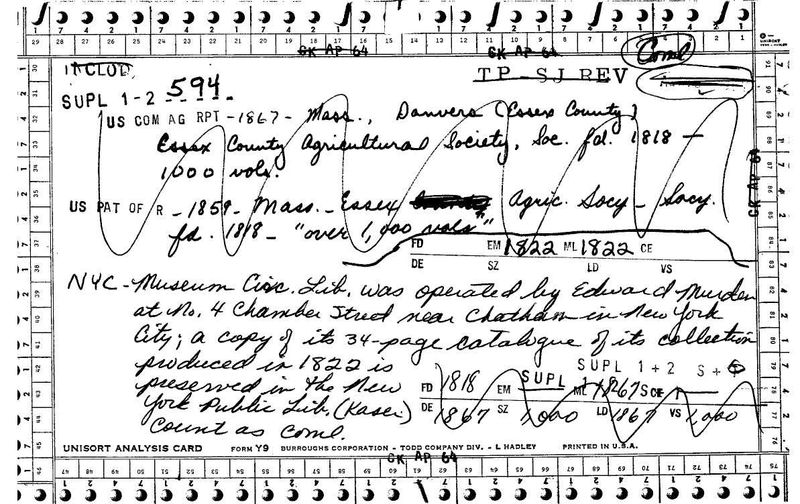 CK AP 64
CK AP 64
Coml
INCLUD
TP-SJ REV
SUPL 1-2 594
US COM AG RPT -1867- Mass., Danvers (Essex County)
Essex County Agricultural Society, Soc. fd. 1818 -
1000 vols.
US PAT OF R -1859- Mass. - Essex County Agric. Socy - Socy.
fd. 1818 - "over 1,000 vols"
FD EM 1822 ML 1822 CE
DE SZ LD VS
NYC - Museum Circ. Lib. was operated by Edward Murden
at No. 4 Chamber Street near Chatham in New York
City; a copy of its 34-page catalogue of its collection
produced in 1822 is
preserved in the New
York Public Lib. (Kaser)
Count as coml.
SUPL 1+2 S+
FD 1818 EM SUPL ML 1867 SCE
DE 1867 SZ 1,000 LD 1867 VS 1,000
UNISORT ANALYSIS CARD FORM Y9 BURROUGHS CORPORATION - TODD COMPANY DIV. - L HADLEY PRINTED IN U.S.A.
CK AP 64
CK AP 64